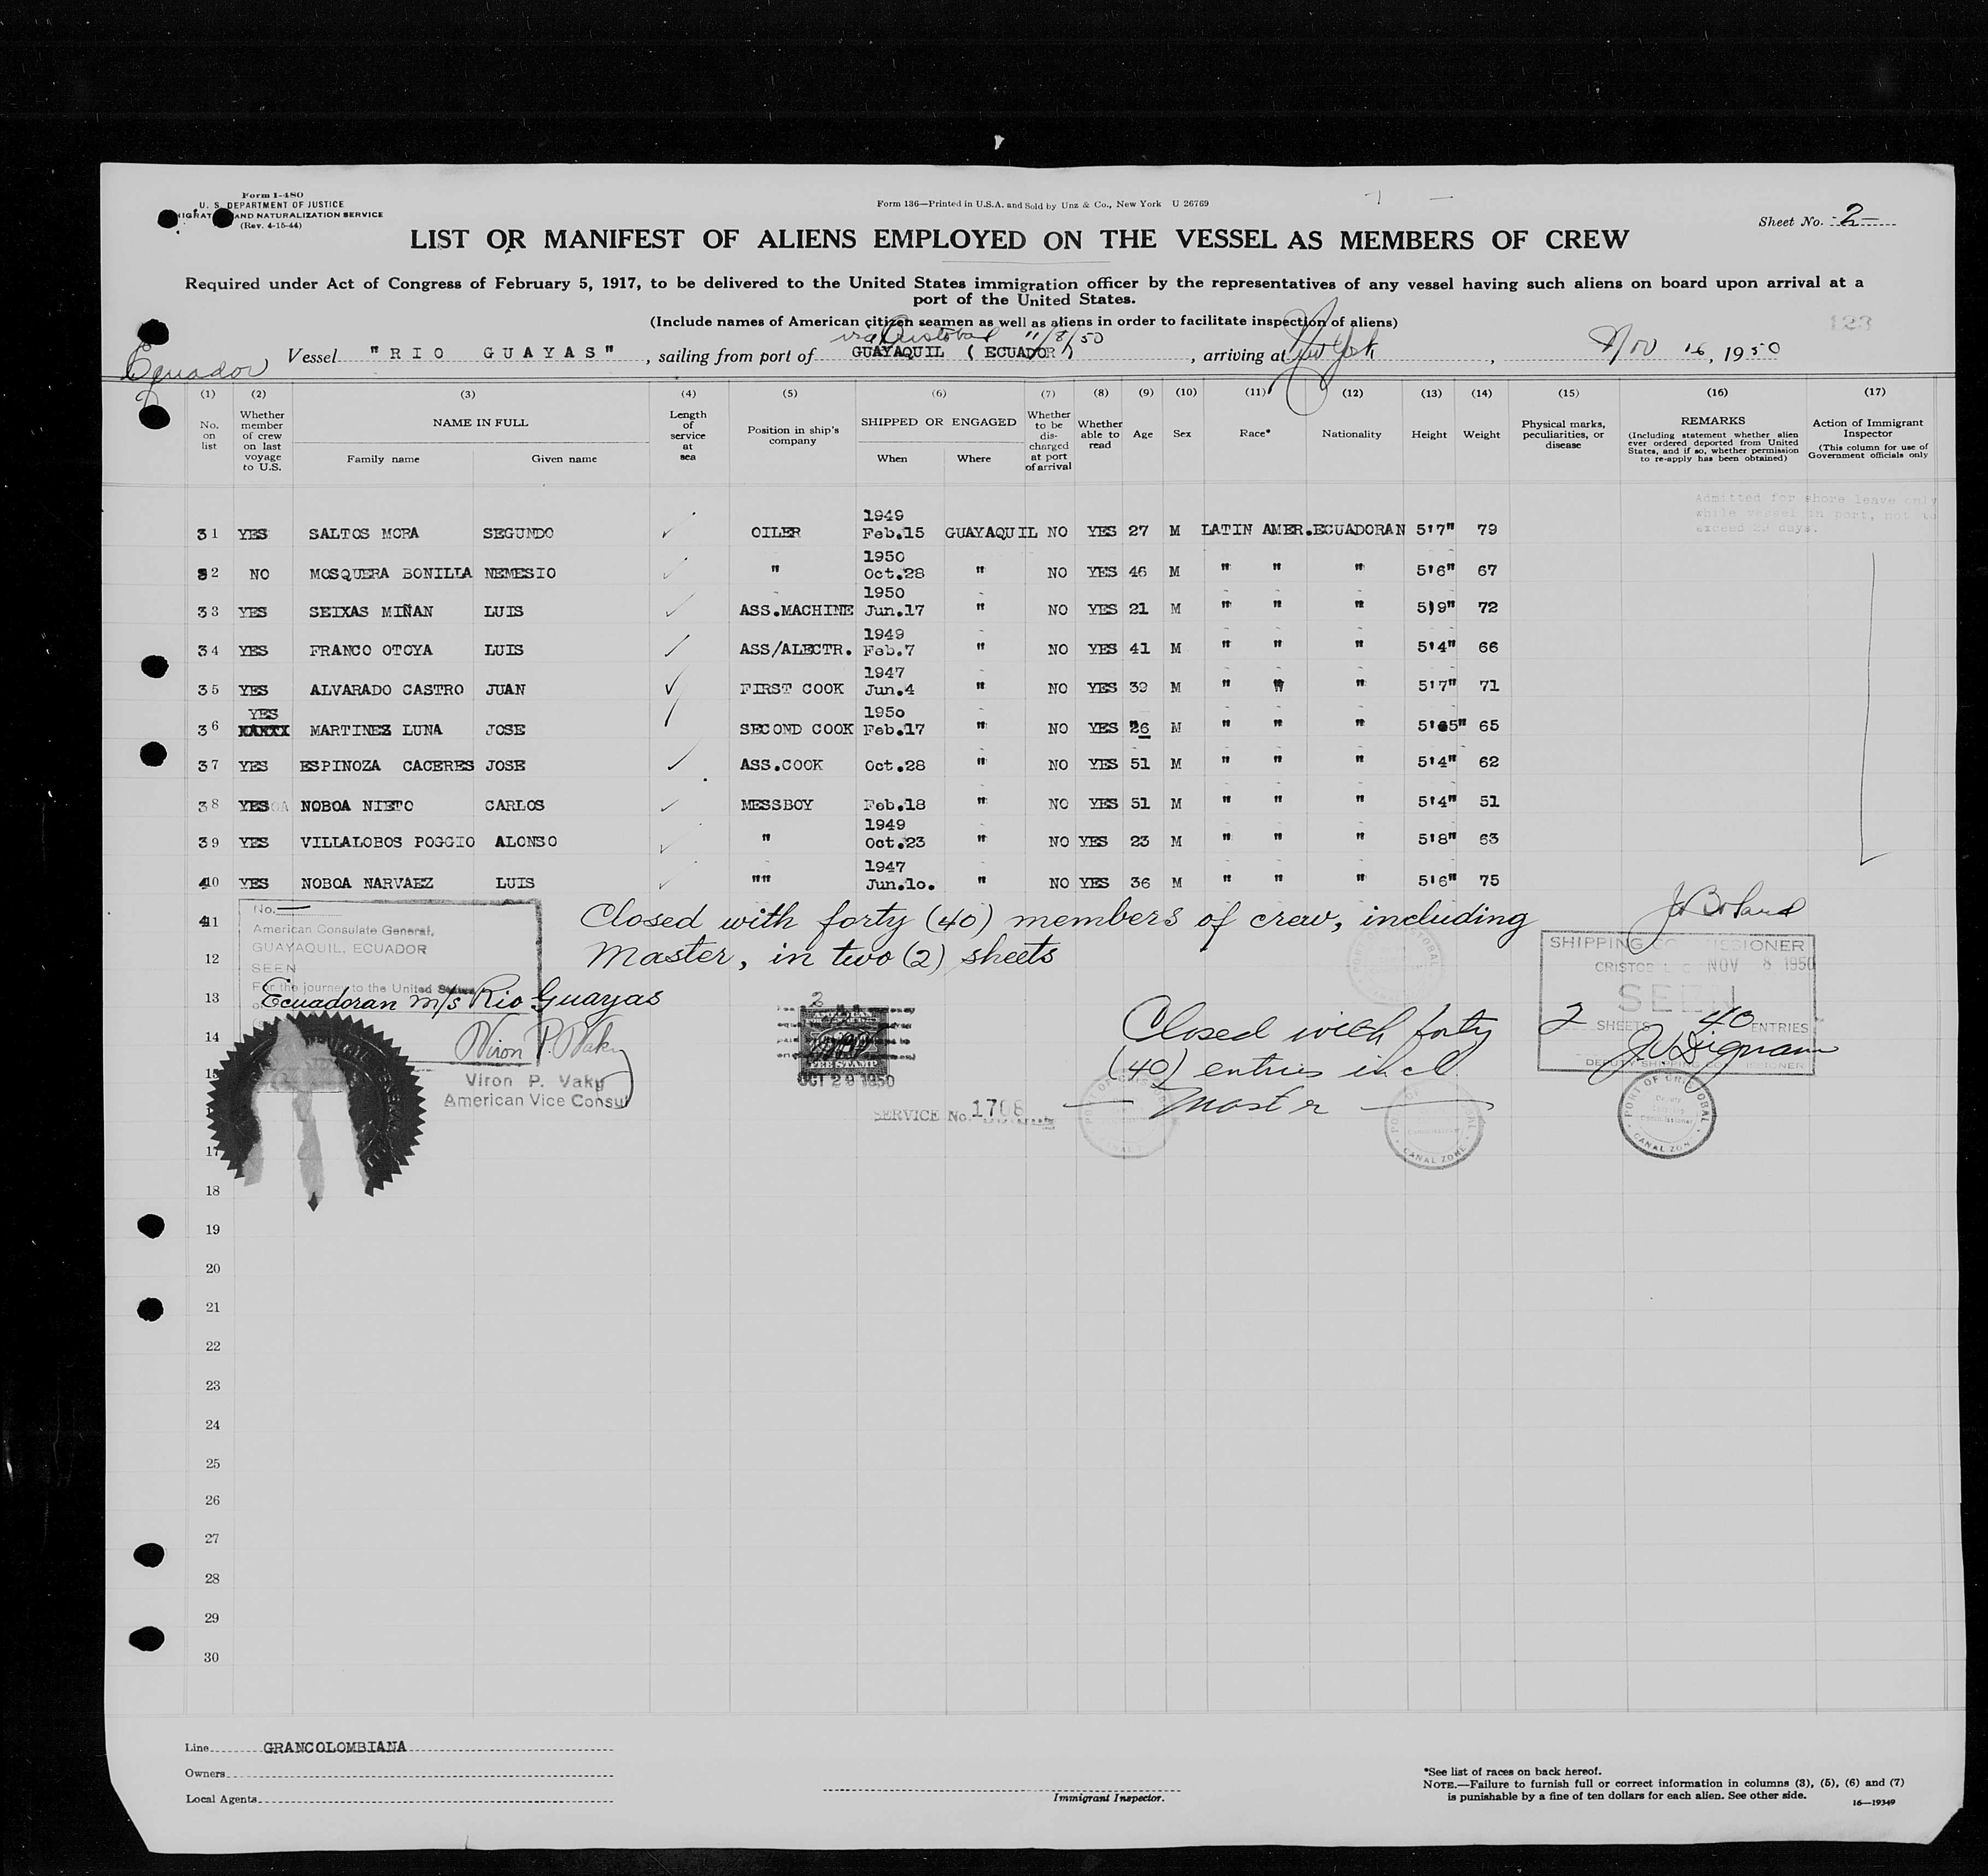 Form I-480
U. S. DEPARTMENT OF JUSTICE
IGRAT AND NATURALIZATION SERVICE
(Rev. 4-15-44)
Form 136—Printed in U.S.A. and Sold by Unz & Co., New York U 26769
Sheet No. 2
LIST OR MANIFEST OF ALIENS EMPLOYED ON THE VESSEL AS MEMBERS OF CREW
Required under Act of Congress of February 5, 1917, to be delivered to the United States immigration officer by the representatives of any vessel having such aliens on board upon arrival at a
port of the United States.
(Include names of American citizen seamen as well as aliens in order to facilitate inspection of aliens)
123
via Cristobal 11/8/50
Ecuador Vessel "RIO GUAYAS", sailing from port of GUAYAQUIL ( ECUADOR ), arriving at New York, Nov 16, 1950
(1) (2) (3) (4) (5) (6) (7) (8) (9) (10) (11) (12) (13) (14) (15) (16) (17)
No. on list
Whether member of crew on last voyage to U.S.
NAME IN FULL
Family name Given name
Length of service at sea
Position in ship's company
SHIPPED OR ENGAGED
When Where
Whether to be discharged at port of arrival
Whether able to read
Age Sex Race* Nationality Height Weight
Physical marks, peculiarities, or disease
REMARKS
(Including statement whether alien ever ordered deported from United States, and if so, whether permission to re-apply has been obtained)
Action of Immigrant Inspector
(This column for use of Government officials only
Admitted for shore leave only
while vessel in port, not to
exceed 29 days.
1949
31 YES SALTOS MORA SEGUNDO OILER Feb.15 GUAYAQUIL NO YES 27 M LATIN AMER. ECUADORAN 5'7" 79
1950
32 NO MOSQUERA BONILLA NEMESIO " Oct.28 " NO YES 46 M " " " 5'6" 67
1950
33 YES SEIXAS MIÑAN LUIS ASS.MACHINE Jun.17 " NO YES 21 M " " " 5'9" 72
1949
34 YES FRANCO OTOYA LUIS ASS/ALECTR. Feb.7 " NO YES 41 M " " " 5'4" 66
1947
35 YES ALVARADO CASTRO JUAN FIRST COOK Jun.4 " NO YES 39 M " " " 5'7" 71
YES 1950
36 MARTINEZ LUNA JOSE SECOND COOK Feb.17 " NO YES 26 M " " " 5'65" 65
37 YES ESPINOZA CACERES JOSE ASS.COOK Oct.28 " NO YES 51 M " " " 5'4" 62
38 YES NOBOA NIETO CARLOS MESSBOY Feb.18 " NO YES 51 M " " " 5'4" 51
1949
39 YES VILLALOBOS POGGIO ALONSO " Oct.23 " NO YES 23 M " " " 5'8" 63
1947
40 YES NOBOA NARVAEZ LUIS "" Jun.10. " NO YES 36 M " " " 5'6" 75
41
12
13
14
15
17
18
19
20
21
22
23
24
25
26
27
28
29
30
No. —
American Consulate General,
GUAYAQUIL, ECUADOR
SEEN
For the journey to the United States
Ecuadoran m/s Rio Guayas
Viron P. Vaky
Viron P. Vaky
American Vice Consul
Closed with forty (40) members of crew, including
Master, in two (2) sheets
2
FEE STAMP
OCT 29 1950
SERVICE No. 1708
Closed with forty
(40) entries incl
— Master —
SHIPPING COMMISSIONER
NOV 8 1950
SEEN
2 SHEETS 40 ENTRIES
DEPUTY SHIPPING COMMISSIONER
PORT OF CRISTOBAL
CANAL ZONE
Line GRANCOLOMBIANA
Owners
Local Agents
Immigrant Inspector.
*See list of races on back hereof.
NOTE.—Failure to furnish full or correct information in columns (3), (5), (6) and (7)
is punishable by a fine of ten dollars for each alien. See other side.
16—19349